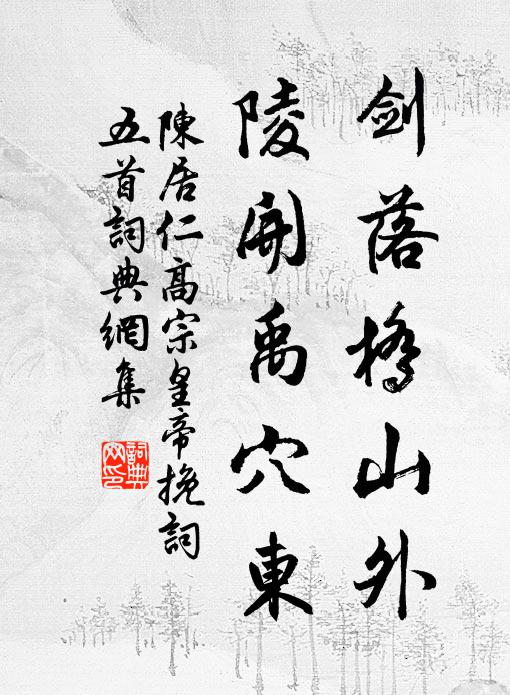 劍落橋山外
陵開禹穴東
陳居仁高宗皇帝挽詞
五首詞典網集
詞典網印